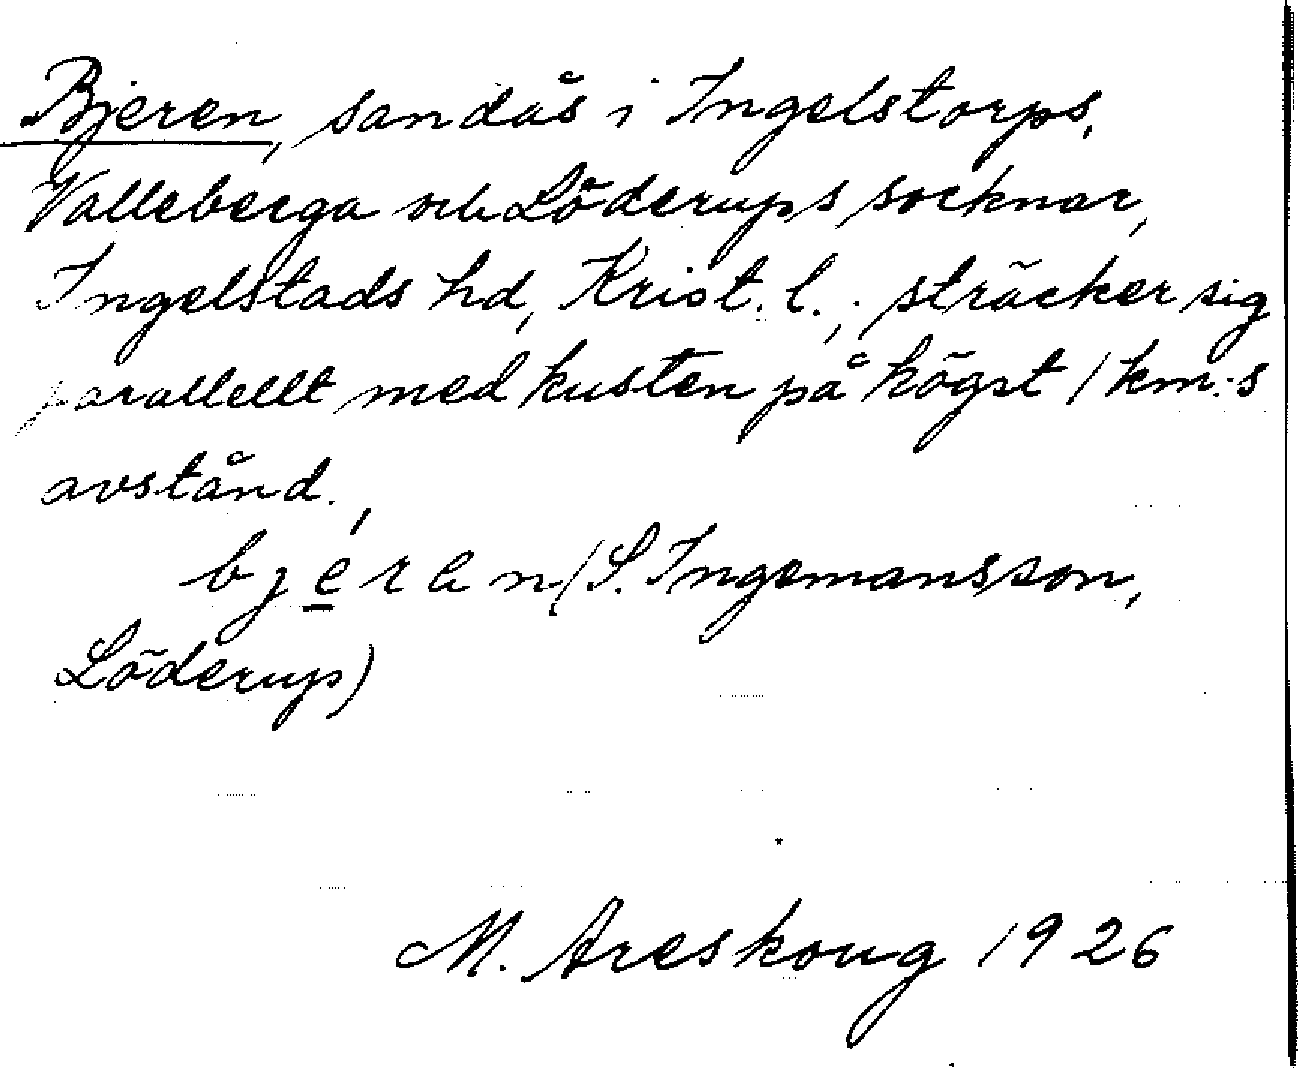 Bjeren, sandås i Ingelstorps,
Valleberga och Löderups socknar,
Ingelstads hd, Krist. l., sträcker sig
parallellt med kusten på högst 1 km:s
avstånd.
bjéran (S. Ingemansson,
Löderup)
M. Areskoug 1926